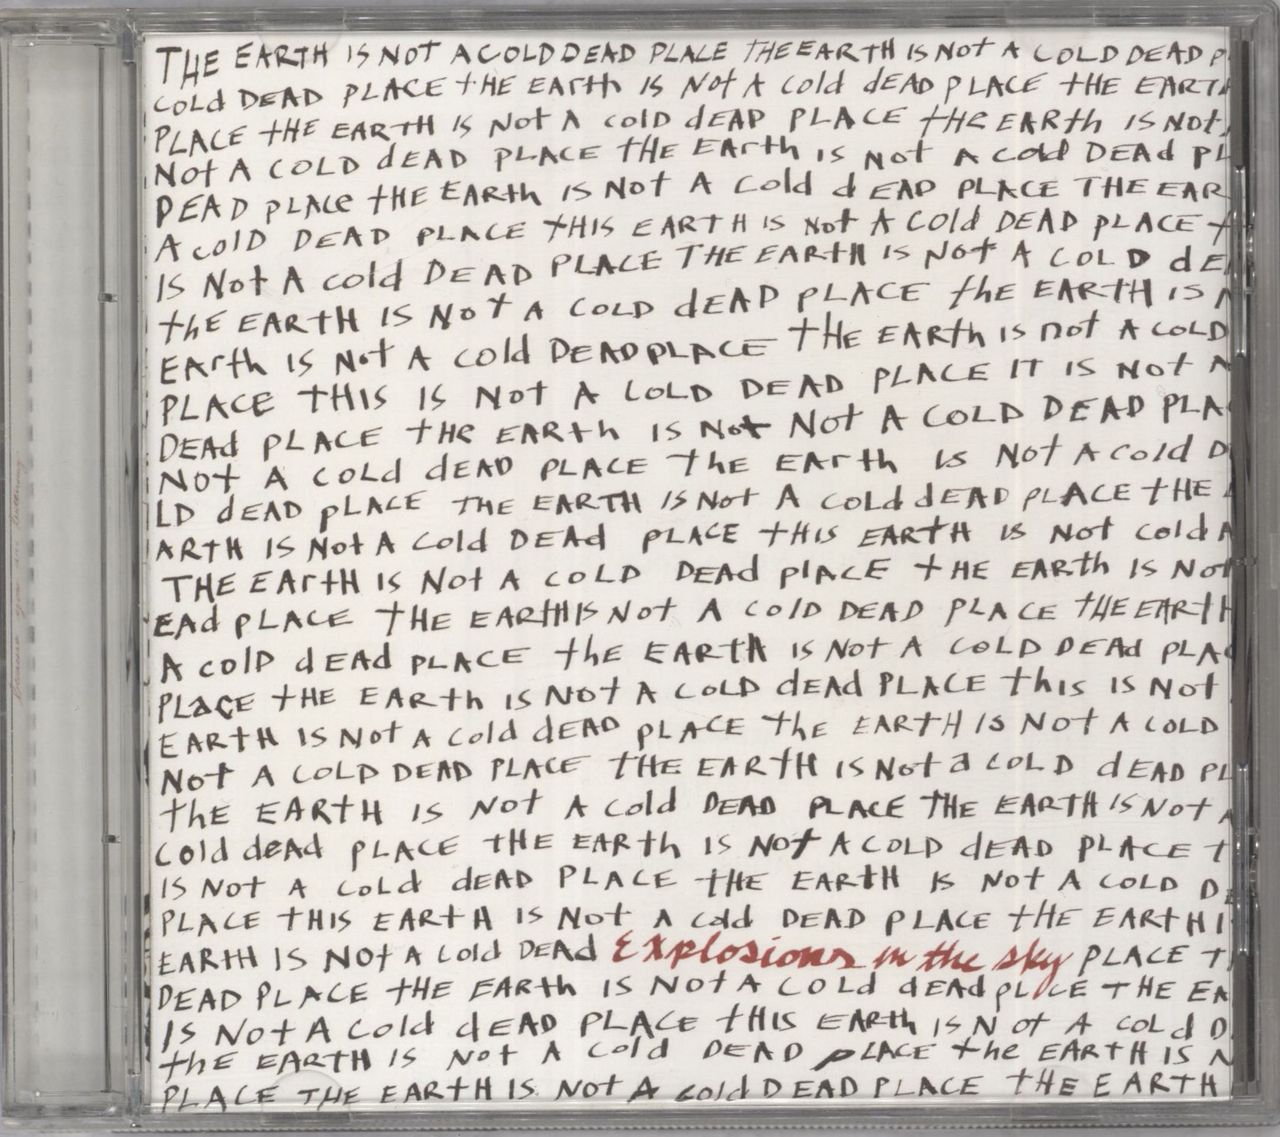 THE EARTH IS NOT A COLD DEAD PLACE THE EARTH IS NOT A COLD DEAD P
COLD DEAD PLACE tHE EARth IS NOt A Cold dEAD PLACE tHE EARTH
PLACE tHE EARTH IS Not A cold dEAD PLACE tHe EARth IS NOt
Not A COLD dEAD PLACE tHE EARth is Not A Cold DEAd PL
DEAD pLACe tHE EARth IS Not A Cold dEAD PLACE THE EAR
A colD DEAD PLACE tHIS EARTH IS Not A Cold DEAD pLACE t
IS Not A cold DEAD PLACE THE EARtH IS NOt A COLD dE
thE EARtH IS NOT A COLD dEAD PLACE the EARTH IS N
EARth IS Not A Cold DEAD PLACE tHE EARth is not A COLD
PLACE THIS IS Not A COLD DEAD PLACE IT IS NOt A
DEAd PLACE tHe EARth IS Not Not A COLD DEAD PLA
NOt A COLD dEAD PLACE the EARth Is Not A Cold D
LD dEAD pLACE THE EARTH IS Not A Cold dEAD PLACE tHE
ARTH IS Not A Cold DEAd PLACE tHIS EARtH IS Not cold A
THE EARtH IS Not A COLD DEAd plACE tHE EARth IS Not
EAd pLACE tHE EARtH IS Not A ColD DEAD PLACE tHE EARtH
A colD dEAd pLACE thE EARtH IS Not A COLD DEAd PLA
PLaCE tHE EARth IS NOt A COLD dEAd PLACE this IS Not
EARtH IS Not A Cold dEAD pLACE the EARtH IS Not A COLD
Not A COLD DEAD PLACE tHE EARtH IS Not a COLD dEAD PL
thE EARtH IS Not A Cold DEAD PLACE THE EARTH IS Not A
Cold deAd pLACE tHE EARth IS Not A COLD dEAD PLACE t
IS Not A Cold dEAD PLACE tHE EARtH IS Not A COLD DE
PLACE tHIS EARtH IS Not A cold DEAD PLACE tHE EARtH I
EARtH IS NOt A Cold DEAD Explosions in the sky PLACE t
DEAD PLACE tHE EARth IS NOt A COLd dEAd pLACE THE EA
IS Not A Cold dEAD PLACE tHIS EARth IS Not A COLd D
thE EARtH IS Not A Cold DEAD pLACE the EARtH IS N
PLACE tHE EARtH IS Not A cold DEAD PLACE tHE EARTH